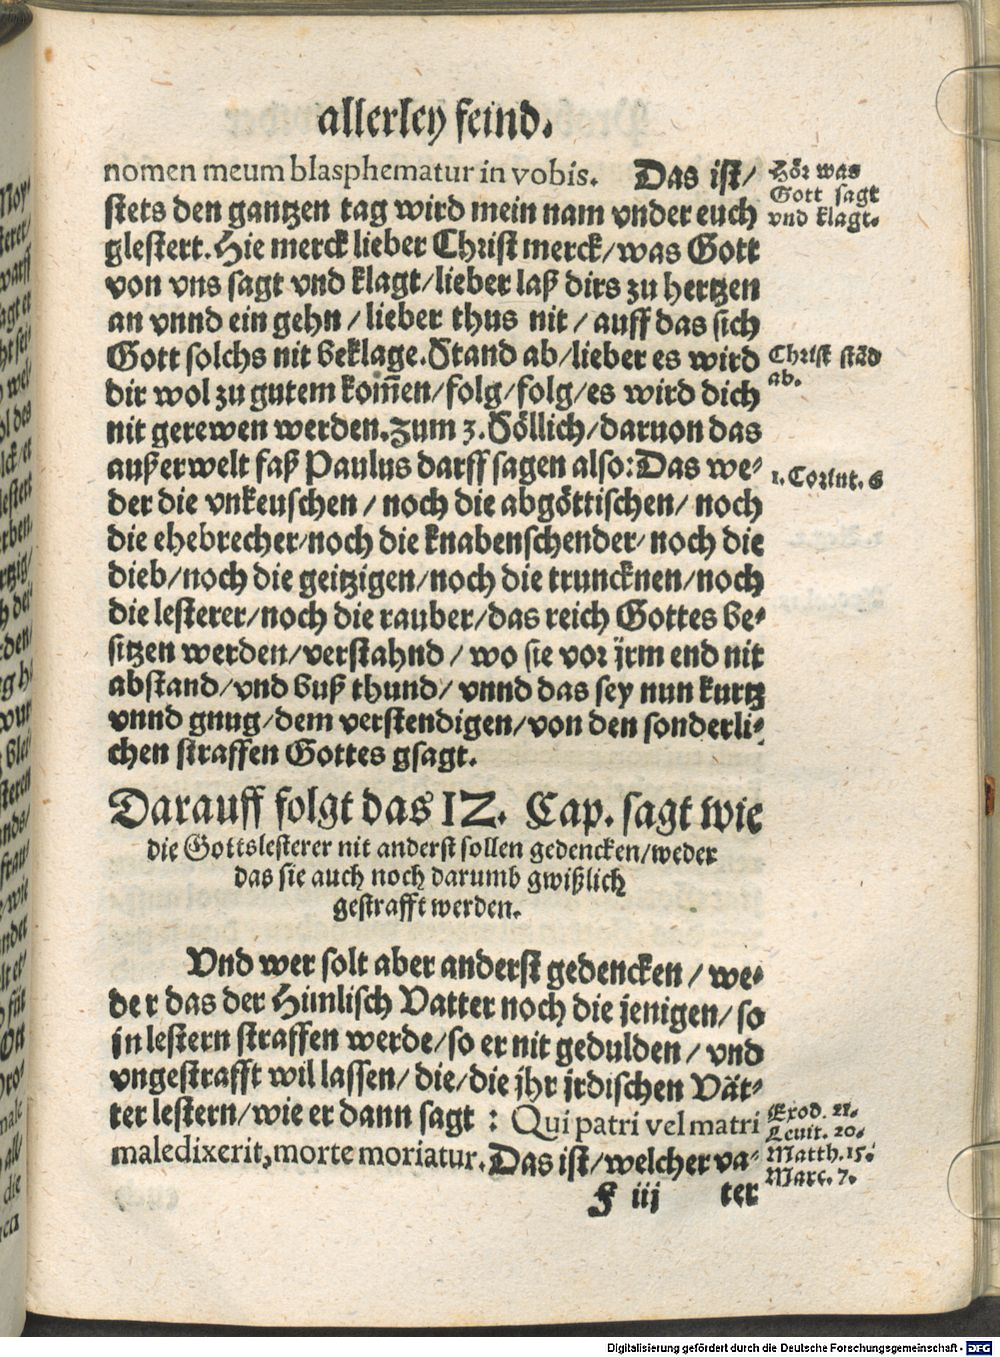 allerley feind.
nomen meum blasphematur in vobis. Das ist/
stets den gantzen tag wird mein nam vnder euch
glestert. Hie merck lieber Christ merck/was Gott
von vns sagt vnd klagt/lieber laß dirs zu hertzen
an vnnd ein gehn/lieber thus nit/auff das sich
Gott solchs nit beklage. Stand ab/lieber es wird
dir wol zu gutem kom̃en/folg/folg/es wird dich
nit gerewen werden. Zum 3. Söllich/daruon das
außerwelt faß Paulus darff sagen also: Das we-
der die vnkeuschen/noch die abgöttischen/noch
die ehebrecher/noch die knabenschender/noch die
dieb/noch die geitzigen/noch die truncknen/noch
die lesterer/noch die rauber/das reich Gottes be-
sitzen werden/verstahnd/wo sie vor jrm end nit
abstand/vnd buß thund/vnnd das sey nun kurtz
vnnd gnug/dem verstendigen/von den sonderli-
chen straffen Gottes gsagt.
Hör was
Gott sagt
vnd klagt.
Christ stād
ab.
1. Corint. 6
Darauff folgt das 12. Cap. sagt wie
die Gottslesterer nit anderst sollen gedencken/weder
das sie auch noch darumb gwißlich
gestrafft werden.
Vnd wer solt aber anderst gedencken/we-
der das der Himlisch Vatter noch die jenigen/so
in lestern straffen werde/so er nit gedulden/vnd
vngestrafft wil lassen/die/die jhr jrdischen Vät-
ter lestern/wie er dann sagt: Qui patri vel matri
maledixerit, morte moriatur. Das ist/welcher va-
Exod. 21.
Leuit. 20.
Matth. 15.
Marc. 7.
F iij ter
Digitalisierung gefördert durch die Deutsche Forschungsgemeinschaft - DFG